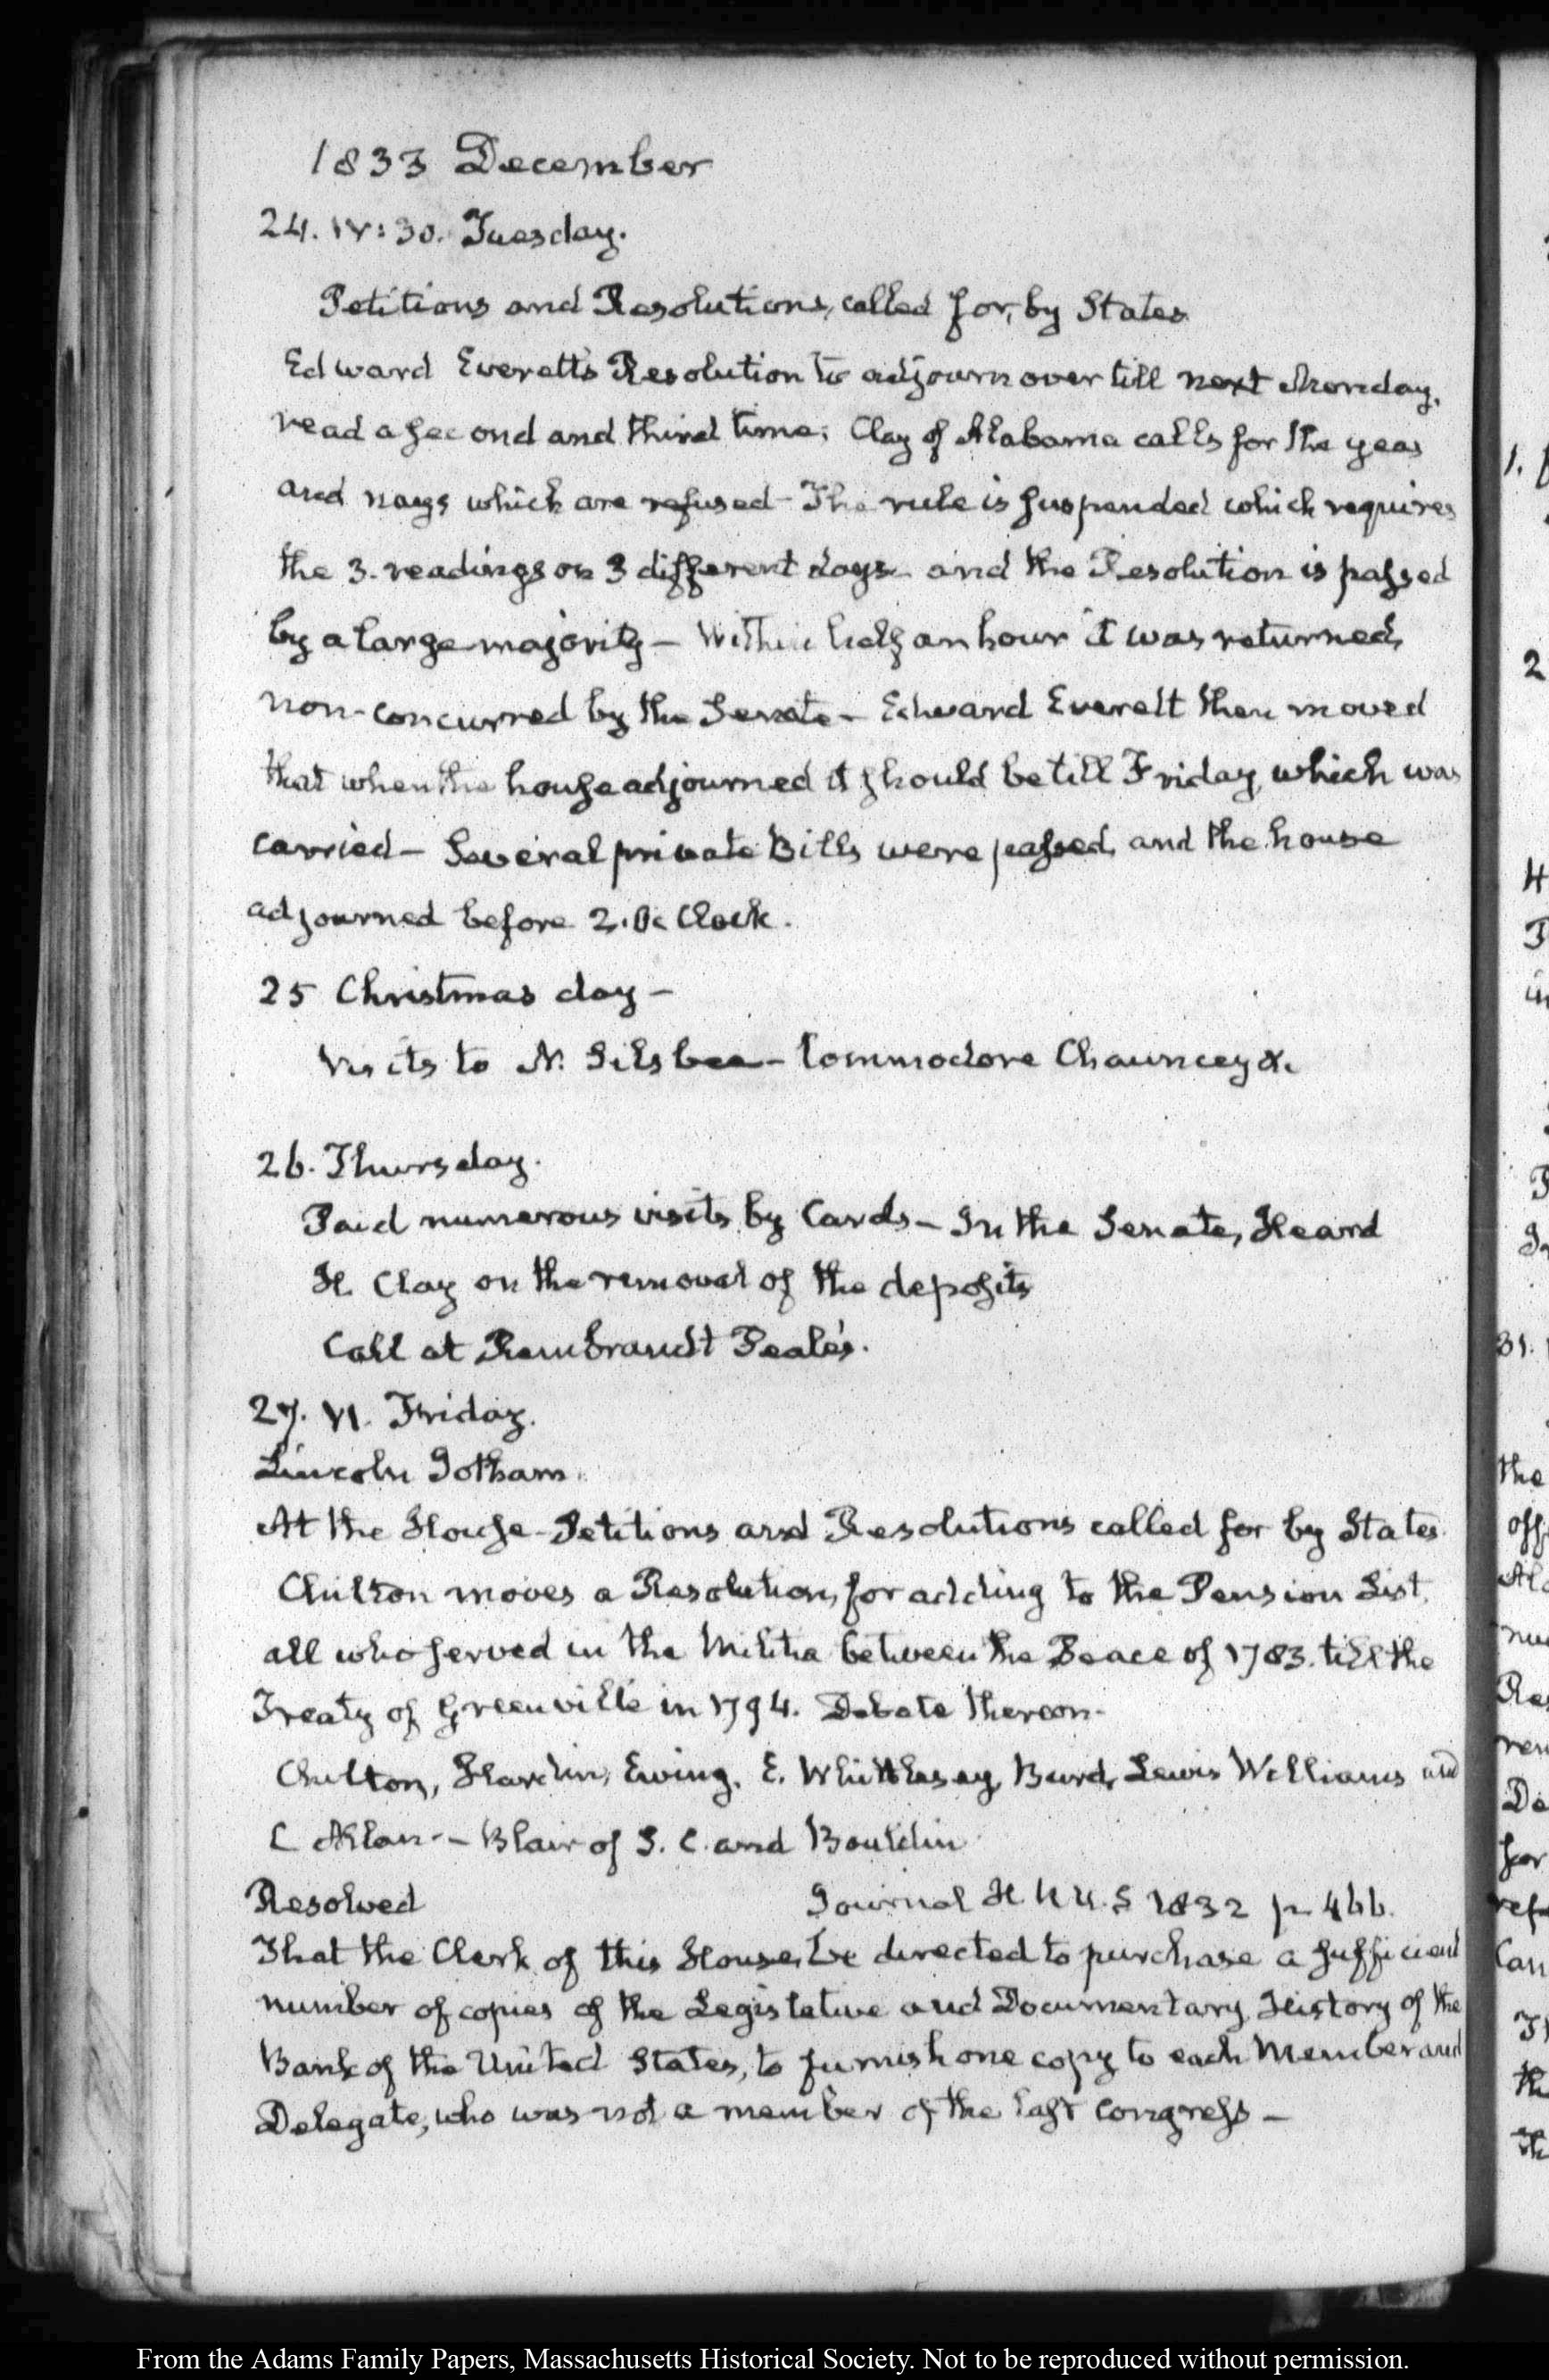 1833 December
24. IV:30. Tuesday.
Petitions and Resolutions, called for, by States
Edward Everett's Resolution to adjourn over till next Monday,
read a second and third time; Clay of Alabama calls for the yeas
and nays which are refused - The rule is suspended which requires
the 3. readings on 3 different days - and the Resolution is passed
by a large majority - Within half an hour it was returned,
non-concurred by the Senate - Edward Everett then moved
that when the house adjourned it should be till Friday, which was
carried - Several private Bills were passed, and the house
adjourned before 2. O'Clock.
25 Christmas day -
Visits to N. Silsbee - Commodore Chauncey &c
26. Thursday.
Paid numerous visits by Cards - In the Senate, Heard
H. Clay on the removal of the deposits
Call at Rembrandt Peale's.
27. VI. Friday.
Lincoln Jotham.
At the House - Petitions and Resolutions called for by States.
Chilton moves a Resolution, for adding to the Pension List,
all who served in the Militia between the Peace of 1783. till the
Treaty of Greenville in 1794. Debate thereon -
Chilton, Hardin, Ewing, E. Whittlesey, Burd, Lewis Williams and
C Allan - Blair of S. C. and Bouldin
Resolved Journal H R U.S 1832 p 466.
That the Clerk of this House, be directed to purchase a sufficient
number of copies of the Legislative and Documentary History of the
Bank of the United States, to furnish one copy to each Member and
Delegate, who was not a member of the last Congress -
1.
2
4
31.
the
From the Adams Family Papers, Massachusetts Historical Society. Not to be reproduced without permission.